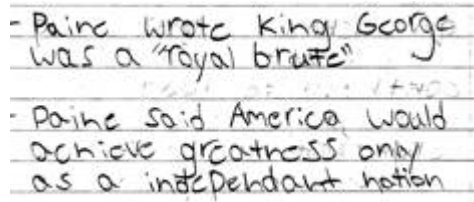 - Paine wrote King George
was a "royal brute"
- Paine said America would
achieve greatness only
as a independant nation